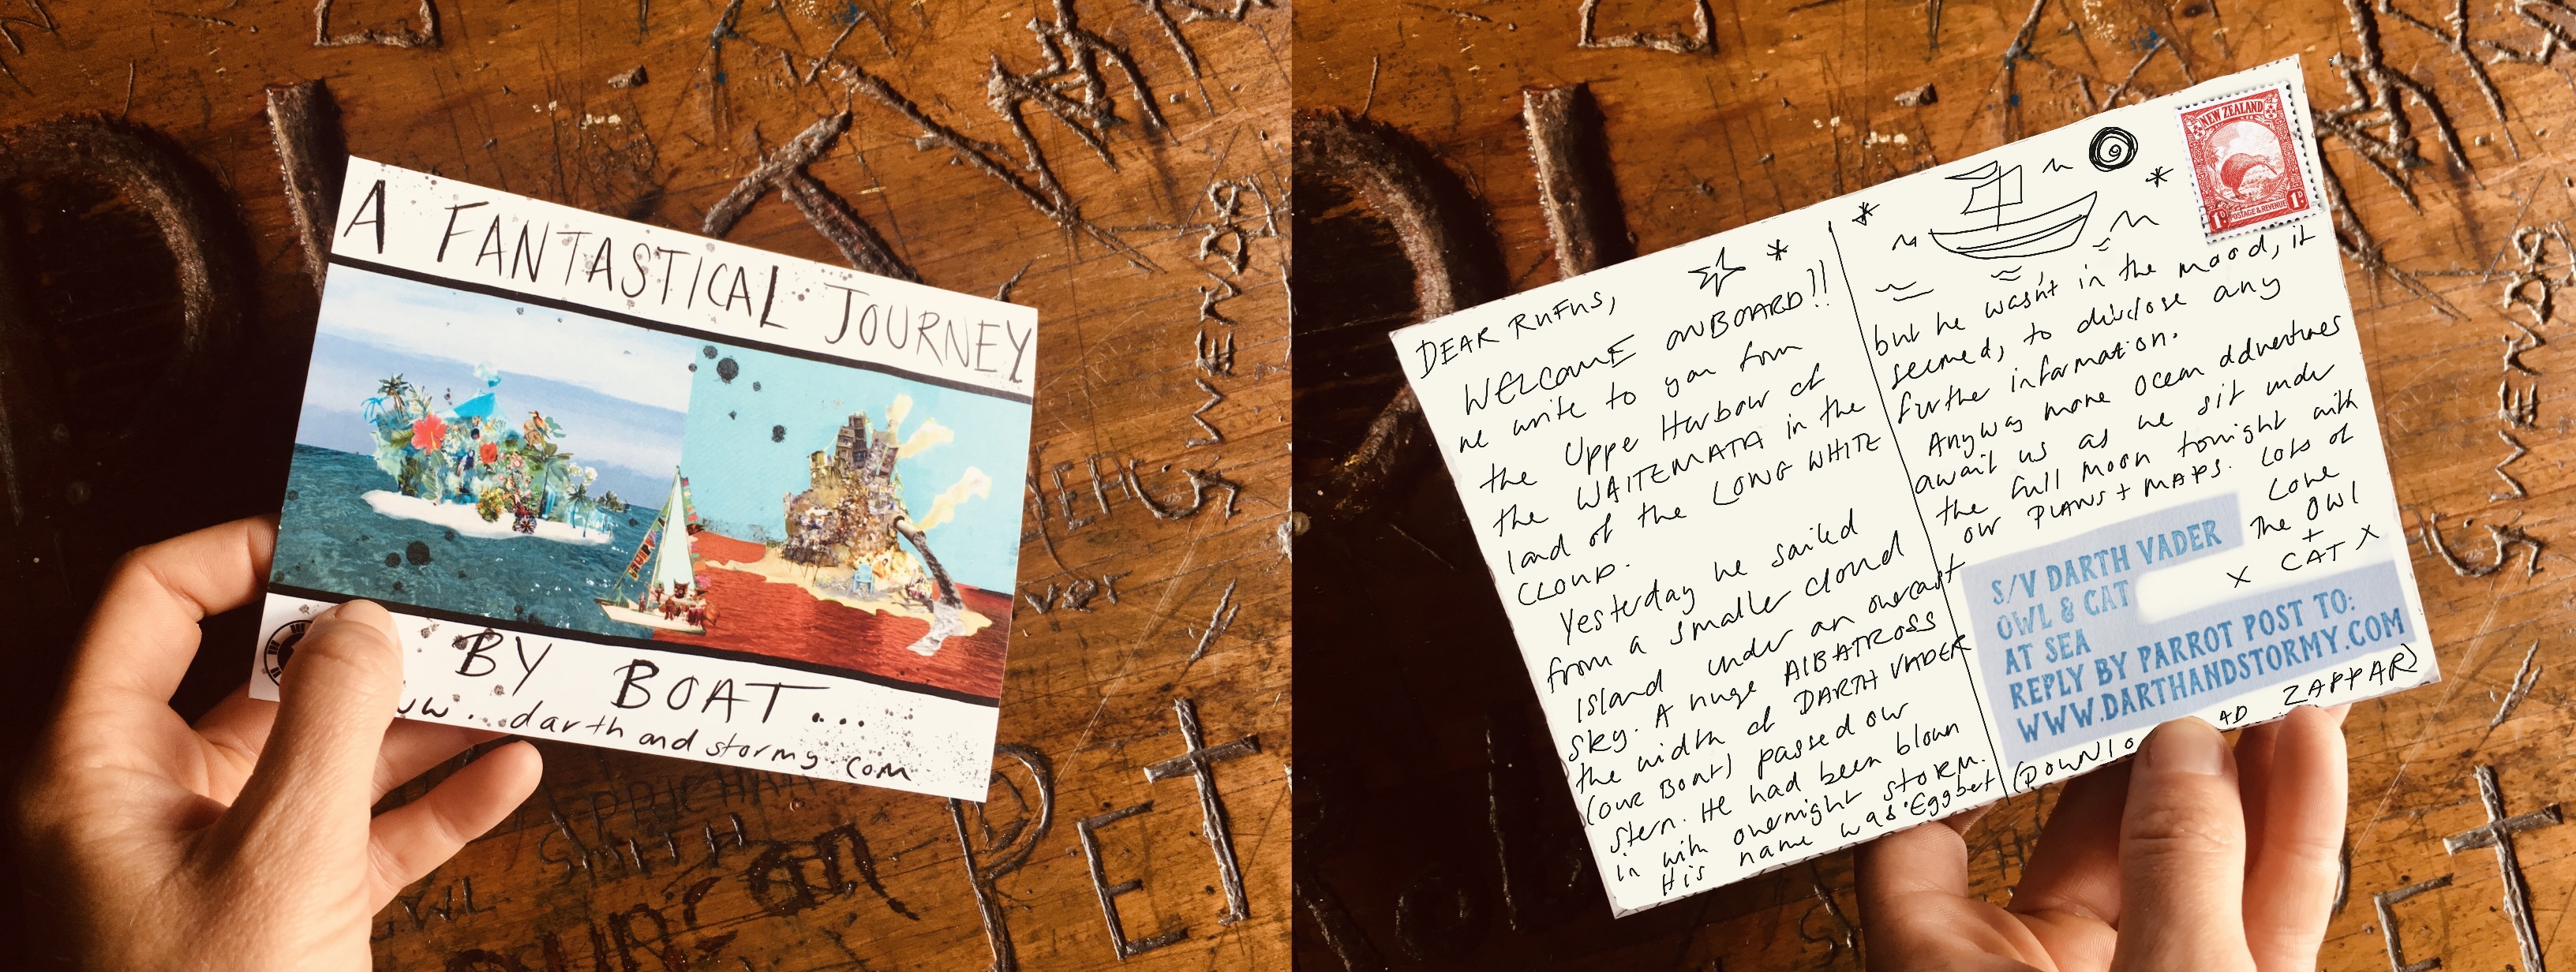 A FANTASTICAL JOURNEY
BY BOAT...
ww...darthandstormy.com
NEW ZEALAND
1D POSTAGE & REVENUE 1D
DEAR RUFUS,
WELCOME ONBOARD!!
we write to you from
the Uppe Harbour of
the WAITEMATA in the
land of the LONG WHITE
CLOUD.
Yesterday we sailed
from a smaller cloud
Island under an overcast
sky. A huge AlBATROSS
the width of DARTH VADER
(our BOAT) passed our
stern. He had been blown
in with overnight storm.
His name was 'Eggbert
but he wasn't in the mood, it
seemed, to disclose any
further information.
Anyway more ocean adventures
await us as we sit under
the full moon tonight with
our PLANS + MAPS. Lots of
Love
The OWL
+
X CAT X
S/V DARTH VADER
OWL & CAT
AT SEA
REPLY BY PARROT POST TO:
WWW.DARTHANDSTORMY.COM
(DOWNLO AD ZAPPAR)
PET
SMITH
VENDA